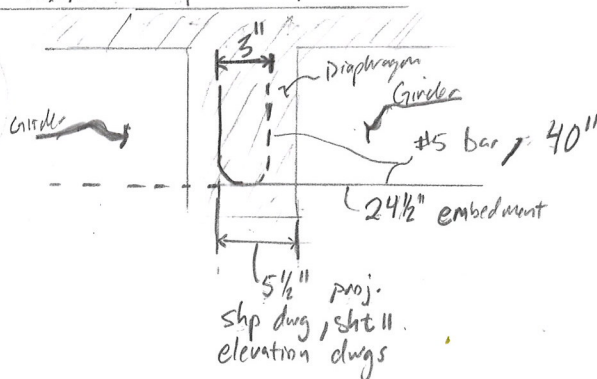 3"
Diaphragm
Girder
Girder
#5 bar, 40"
24½" embedment
5½" proj.
shp dwg, sht 11.
elevation dwgs